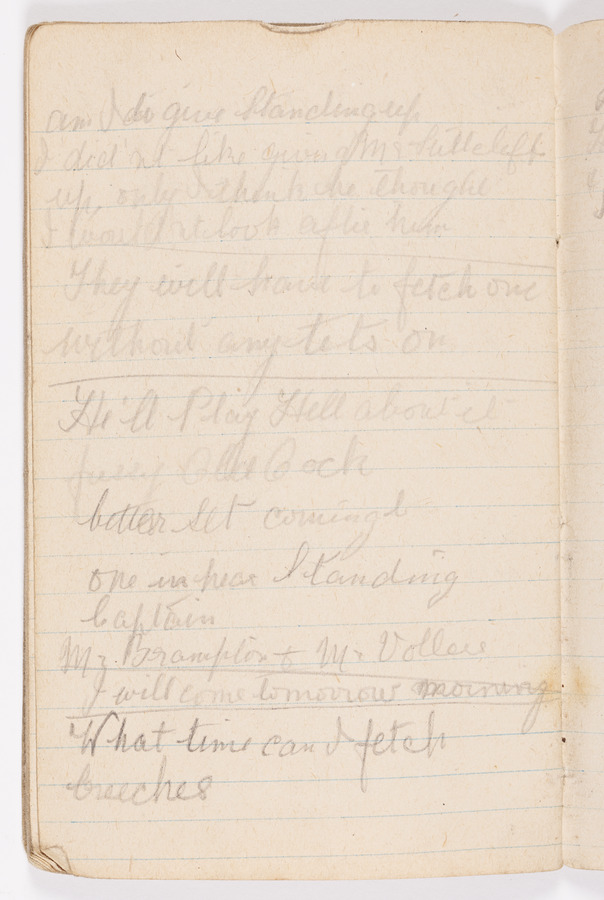 am I to give Standing up
I did'nt like giving Mr Suttcleft
up, only I think he thought
I would'nt look after him
They will have to fetch one
without any tets on
He'll Play Hell about it
fussy Old Cock
better set coming
one in hear Standing
Captain
Mr Brampton & Mr Voller
I will come tomorrow morning
What time can I fetch
breeches